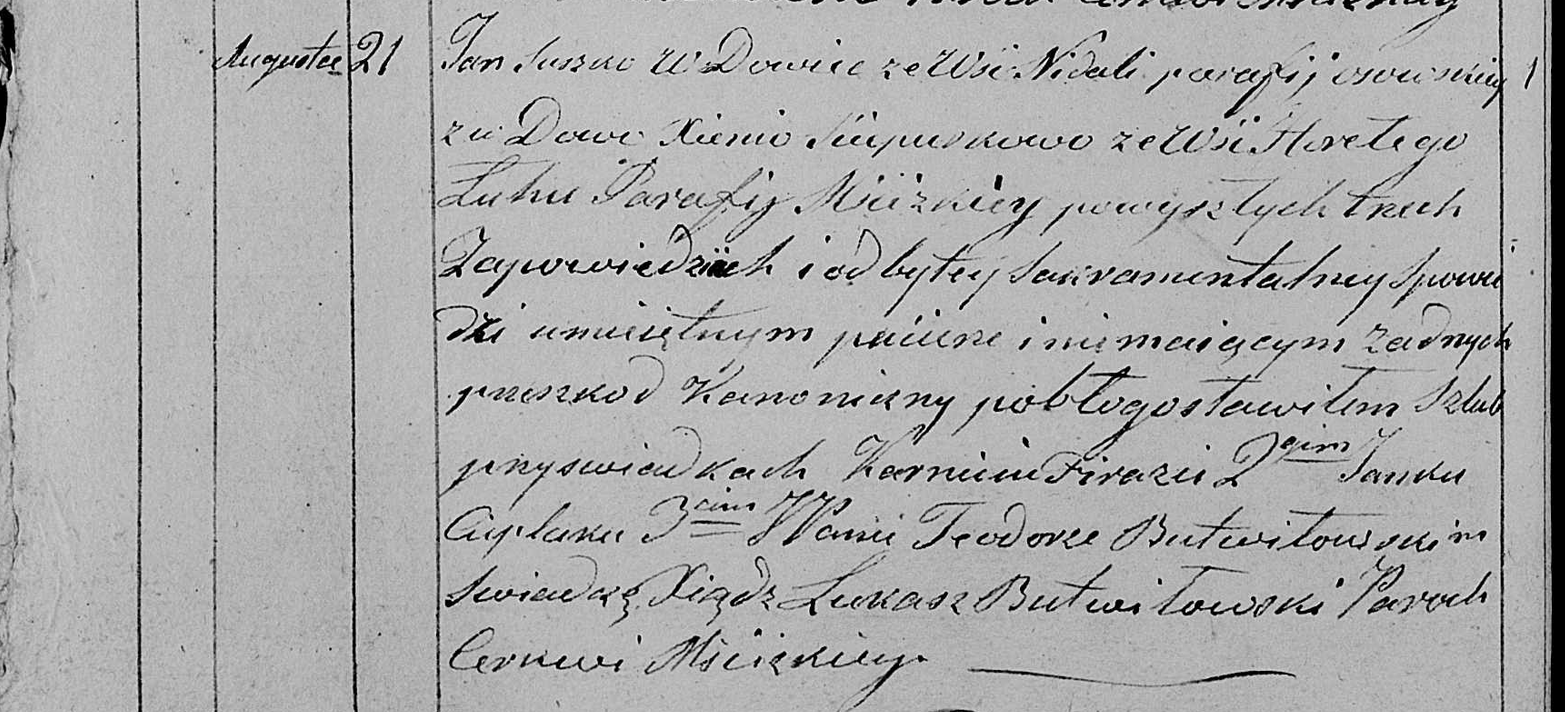 Augusta 21 Jan Suszko WDowiec ze Wsi Nidali parafij osowskiey 1
z w Dowo Xienio Sliapuskowo ze Wsi Horelego
Luhu Parafij Mściżkiey powyszłych trzech
Zapowiedziach i odbytey Sakramentalney Spowie
dzi umieiętnym pacierz i nie maiącym żadnych
przeszkod Kanoniczny pobłogosławiłem Szlub
przyswiadkach Karnieiu Firazii 2gim Janku
Cieplaku 3cim JPanie Teodorze Butwiłowskim
swiadczę Xiądz Łukasz Butwiłowski Paroch
Cerkwi Mściżkiey.